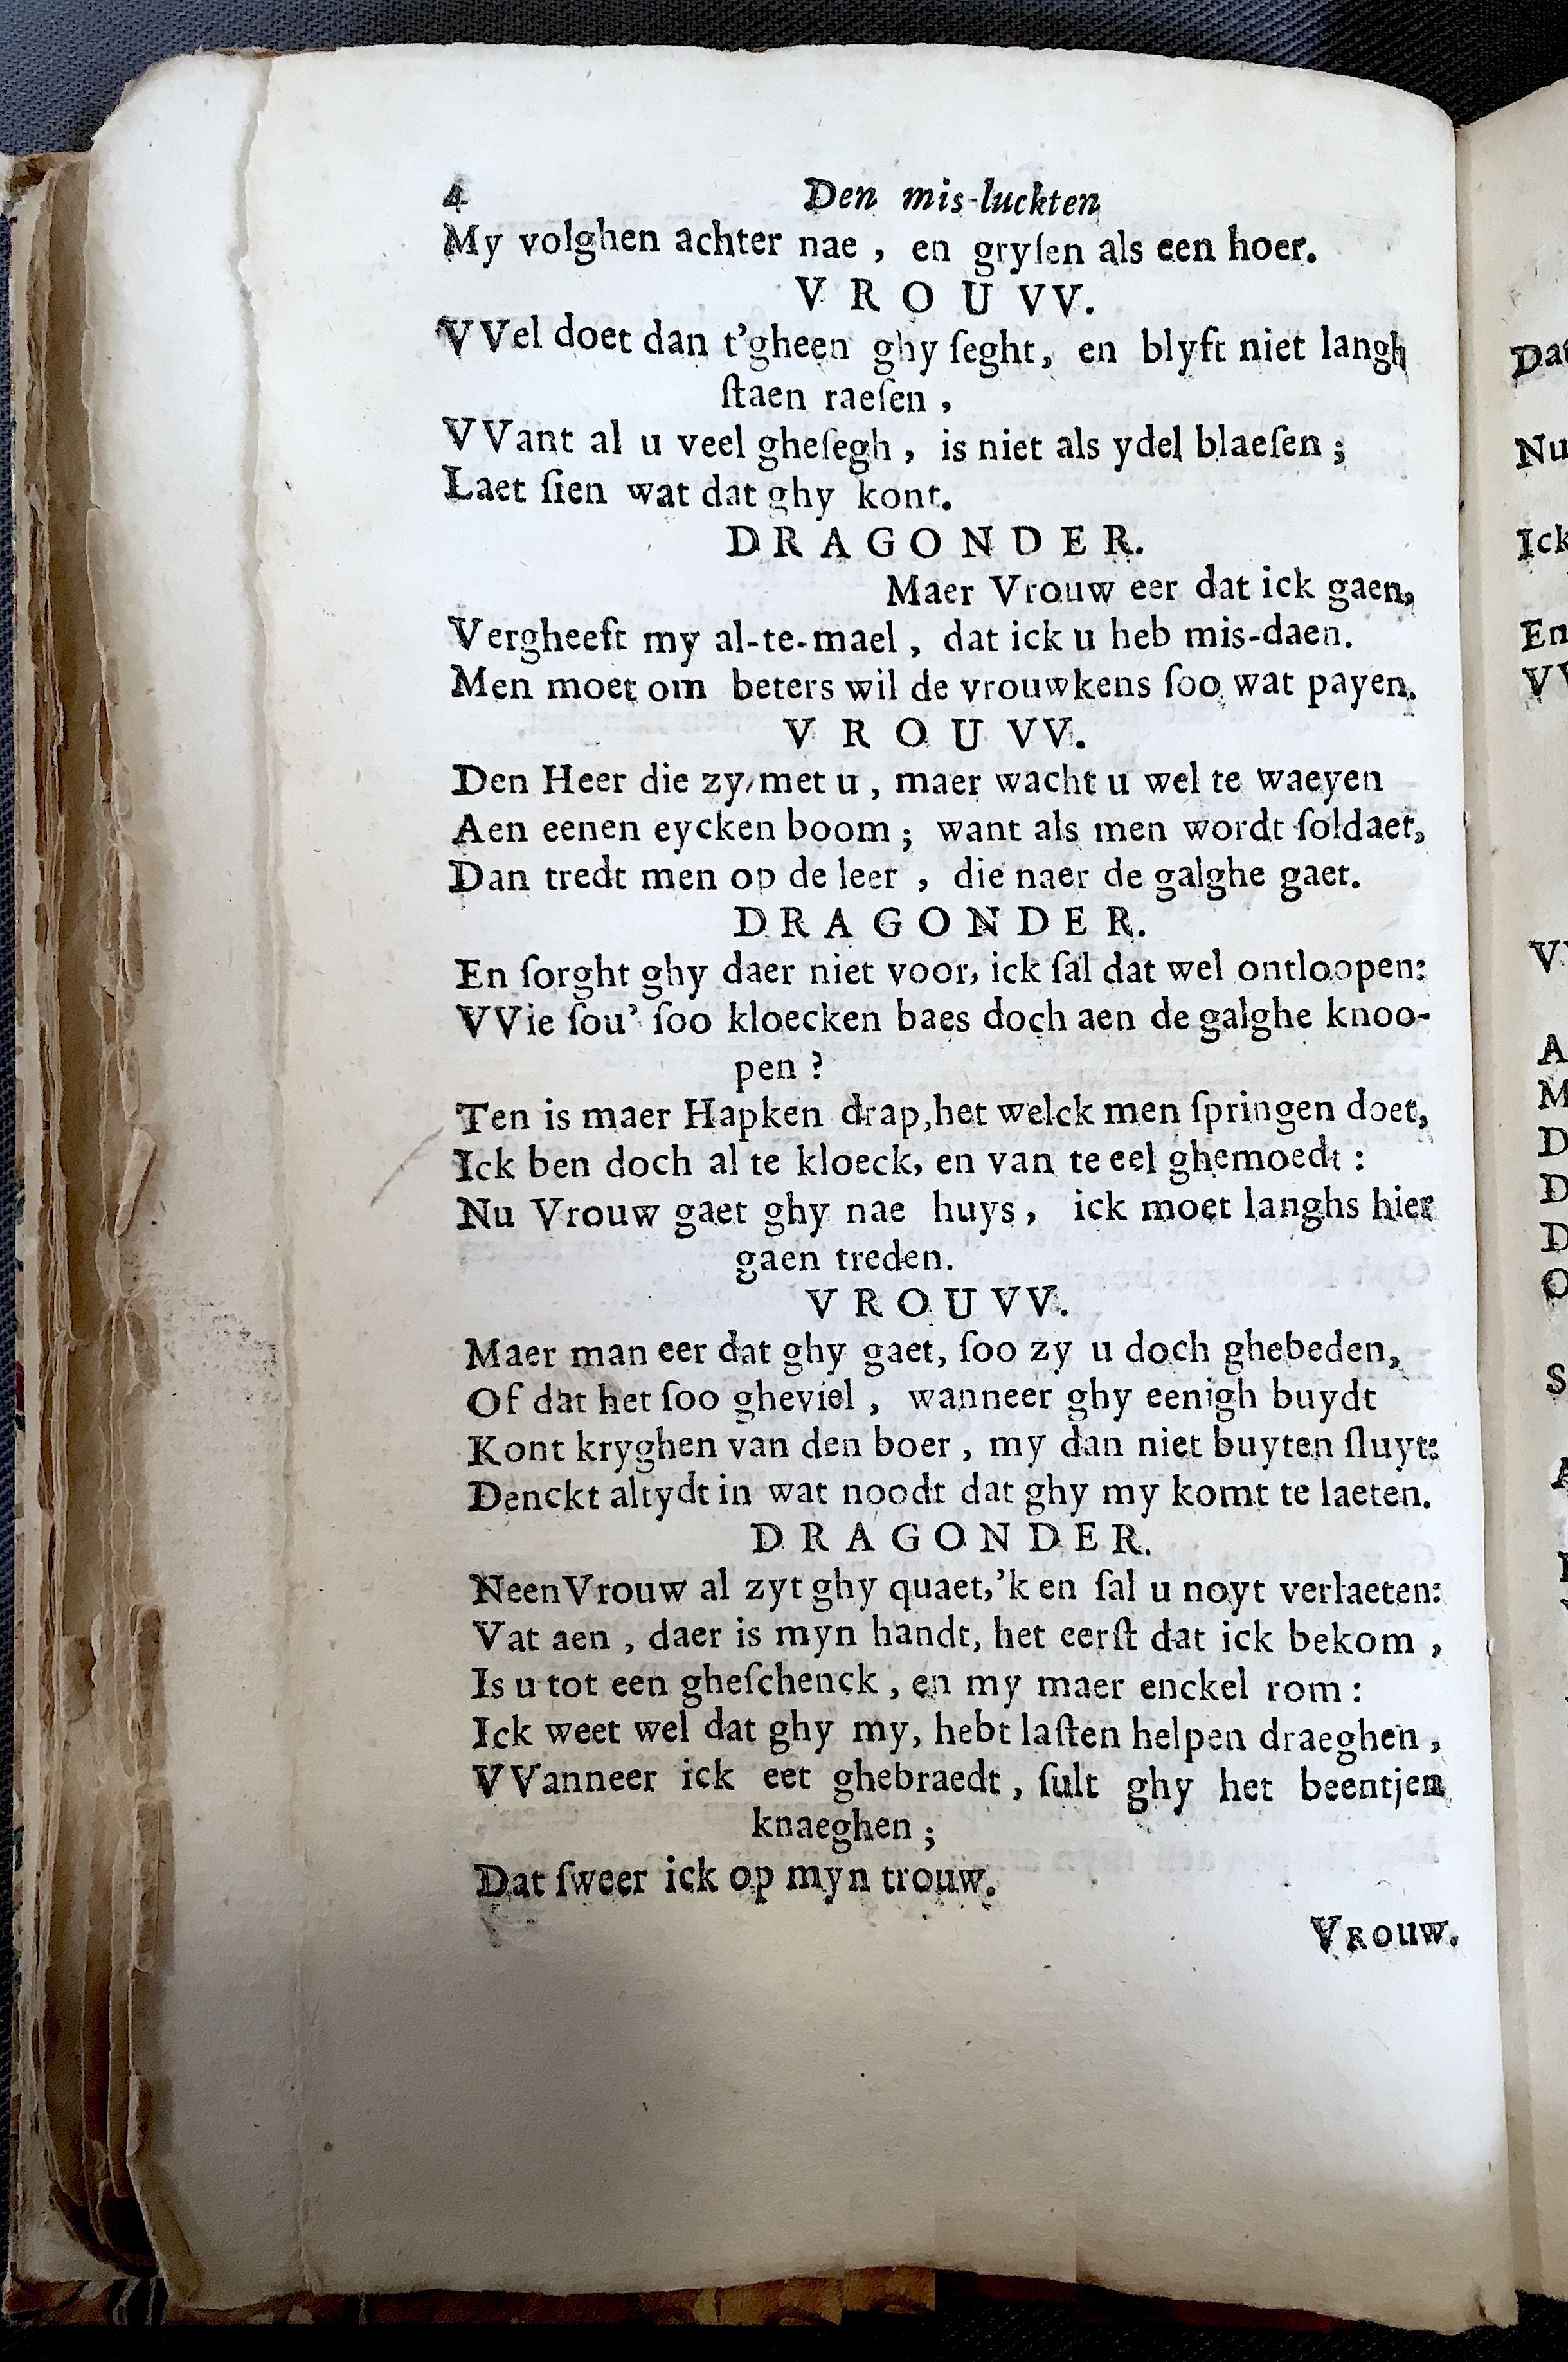 4 Den mis-luckten
My volghen achter nae , en gryſen als een hoer.
V R O U VV.
VVel doet dan t'gheen ghy ſeght, en blyft niet langh
ſtaen raeſen ,
VVant al u veel gheſegh , is niet als ydel blaeſen ;
Laet ſien wat dat ghy kont.
D R A G O N D E R.
Maer Vrouw eer dat ick gaen,
Vergheeft my al-te-mael , dat ick u heb mis-daen.
Men moet om beters wil de vrouwkens ſoo wat payen.
V R O U VV.
Den Heer die zy met u , maer wacht u wel te waeyen
Aen eenen eycken boom ; want als men wordt ſoldaet,
Dan tredt men op de leer , die naer de galghe gaet.
D R A G O N D E R.
En ſorght ghy daer niet voor, ick ſal dat wel ontloopen:
VVie ſou' ſoo kloecken baes doch aen de galghe knoo-
pen ?
Ten is maer Hapken drap,het welck men ſpringen doet,
Ick ben doch al te kloeck, en van te eel ghemoedt :
Nu Vrouw gaet ghy nae huys , ick moet langhs hier
gaen treden.
V R O U VV.
Maer man eer dat ghy gaet, ſoo zy u doch ghebeden,
Of dat het ſoo gheviel , wanneer ghy eenigh buydt
Kont kryghen van den boer , my dan niet buyten ſluyt:
Denckt altydt in wat noodt dat ghy my komt te laeten.
D R A G O N D E R.
Neen Vrouw al zyt ghy quaet,'k en ſal u noyt verlaeten:
Vat aen , daer is myn handt, het eerſt dat ick bekom ,
Is u tot een gheſchenck , en my maer enckel rom :
Ick weet wel dat ghy my, hebt laſten helpen draeghen ,
VVanneer ick eet ghebraedt , ſult ghy het beentjen
knaeghen ;
Dat ſweer ick op myn trouw.
VROUW.
Dat
Nu
Ick
En